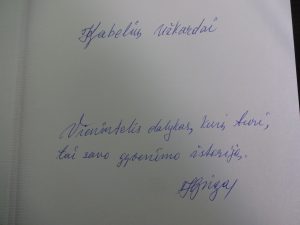 Kabelių užkardai
Vienintelis dalykas, kurį turi,
tai savo gyvenimo istorija.